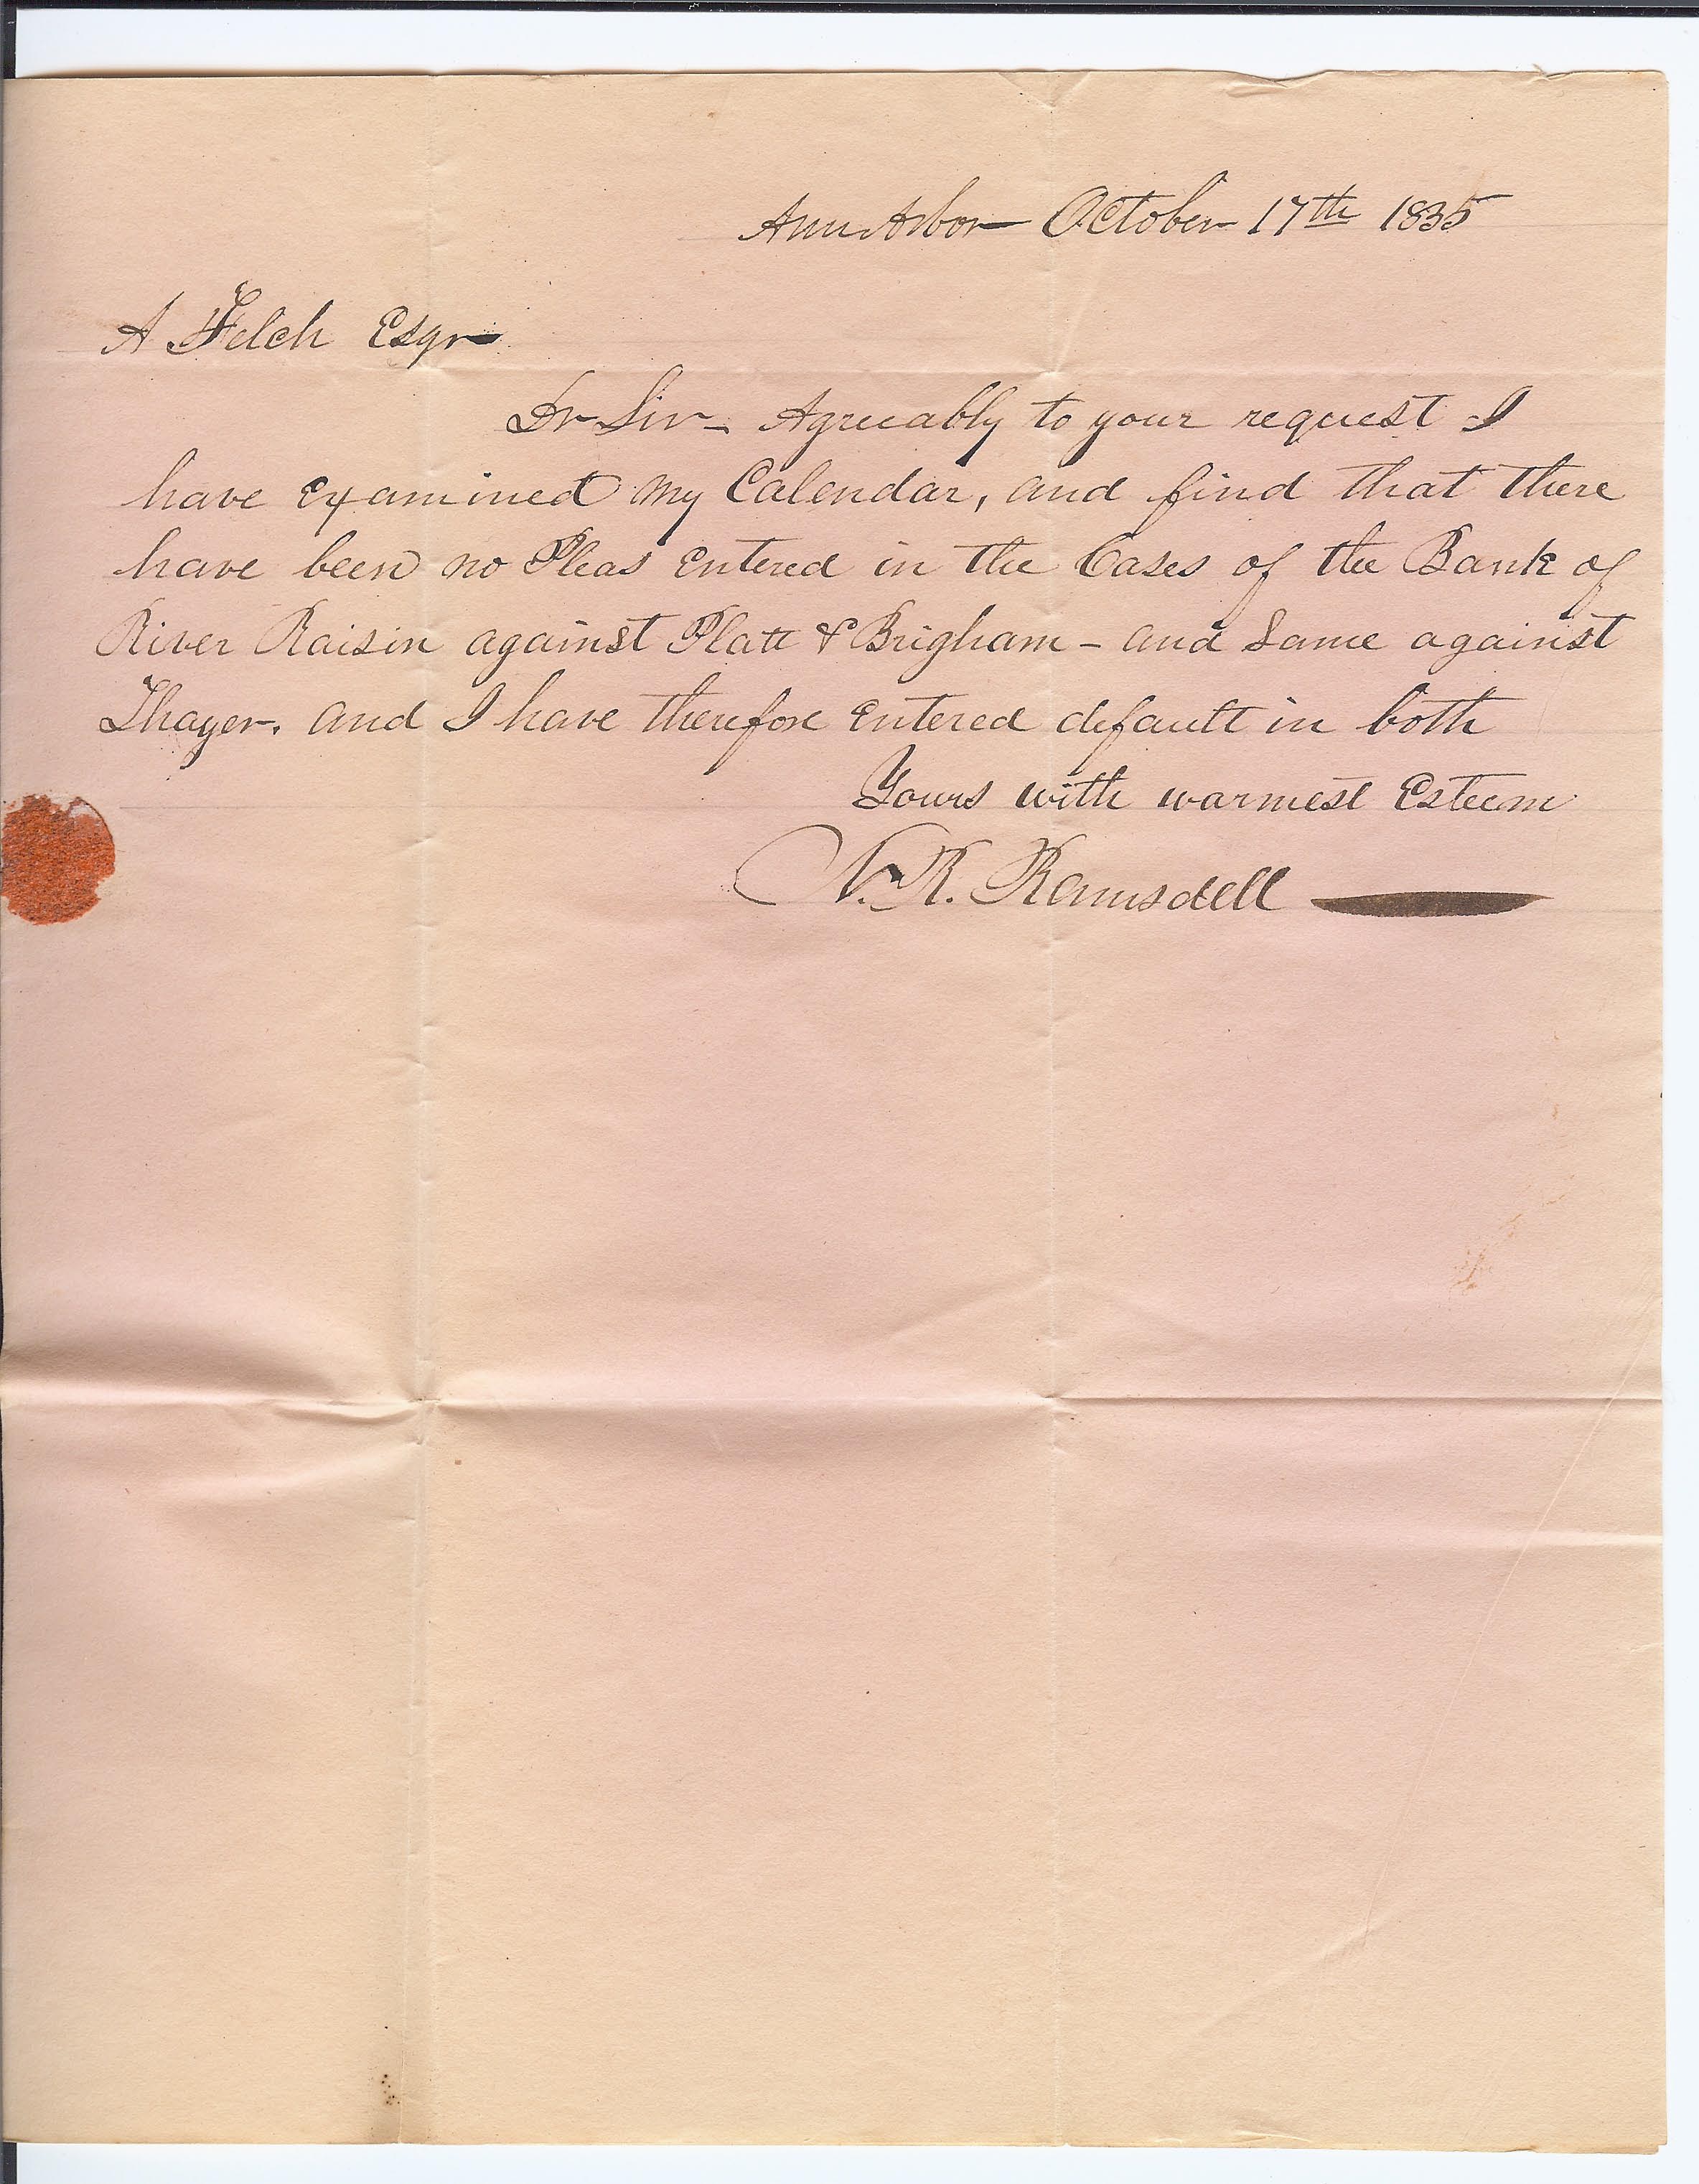 Ann Arbor October 17th 1835
A Felch Esqr
Dr Sir - Agreeably to your request I
have Examined my Calendar, and find that there
have been no Pleas Entered in the Cases of the Bank of
River Raisin against Platt & Brigham - and Same against
Thayer. and I have therefore Entered default in both
Yours with warmest Esteem
N. R. Ramsdell